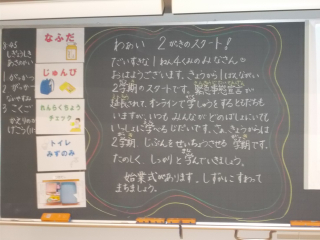 8:45
なふだ
じゅんび
れんらくちょう
チェック
トイレ
みずのみ
わぁい 2がっきのスタート!
だいすきな1ねん4くみのみなさん。
おはようございます。きょうから1ぱんながい
2学期のスタートです。緊急事態宣言が
延長されて、オンラインで学しゅうをするともだちも
いますが、いつも みんなが どのばしょにいても
いっしょに学べるじだいです。さぁ、きょうからは
2学期 じぶんをせいちょうさせる学期です。
たのしく、しっかりと学んでいきましょう。
始業式があります。しずかにすわって
まちましょう。